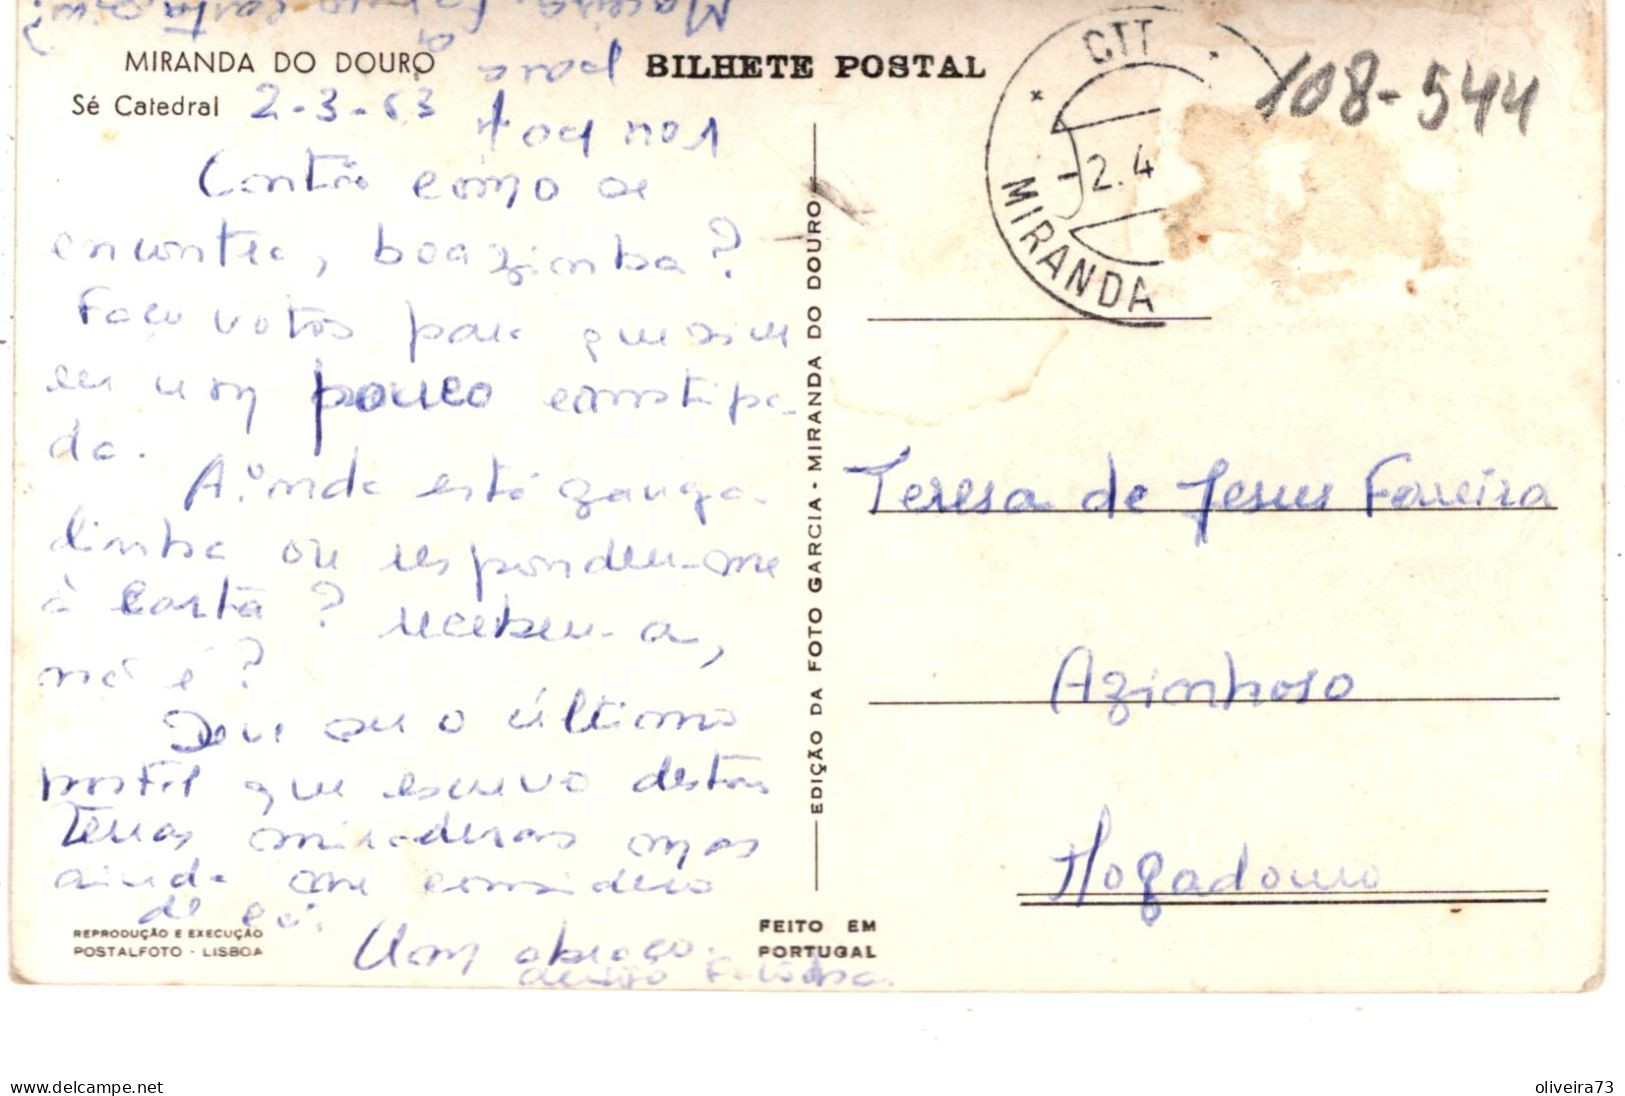 MIRANDA DO DOURO
Sé Catedral
2-3-63
BILHETE POSTAL
CTT
2.4
MIRANDA
108-544
Então como se
encontra, boazinha?
Faço votos para que sim
eu um pouco constipa-
da.
Ainda está zanga-
dinha ou respondeu-me
à carta? recebeu-a,
não é?
Deve ser o último
postal que escrevo destas
terras mirandesas mas
ainda me considero
de cá.
Um abraço.
EDIÇÃO DA FOTO GARCIA - MIRANDA DO DOURO
Teresa de Jesus Ferreira
Azinhoso
Mogadouro
REPRODUÇÃO E EXECUÇÃO
POSTALFOTO - LISBOA
FEITO EM
PORTUGAL
www.delcampe.net
oliveira73